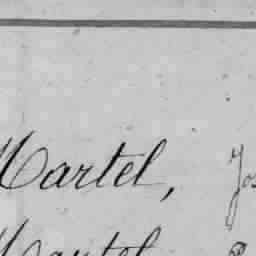 Martel, Jos
Martel